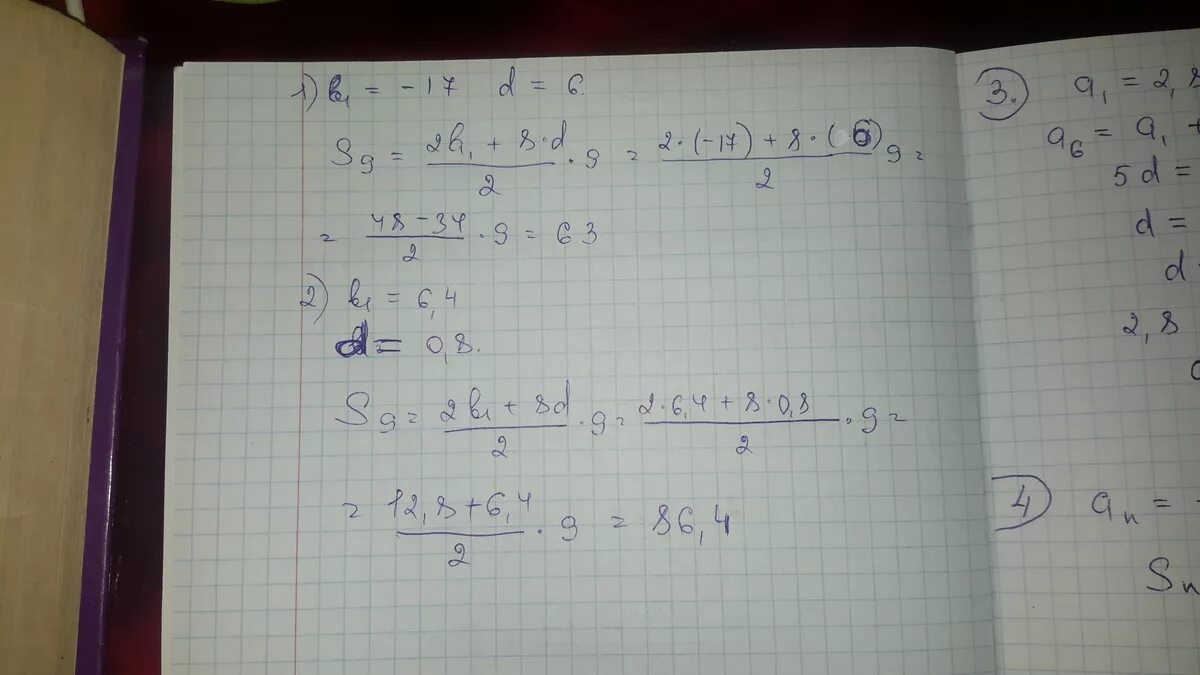 1) b₁ = -17 d = 6.
S₉ = (2b₁ + 8·d)/2 · 9 = (2·(-17) + 8·(6))/2 9 =
= (48 - 34)/2 · 9 = 63
2) b₁ = 6,4
d = 0,8.
S₉ = (2b₁ + 8d)/2 · 9 = (2·6,4 + 8·0,8)/2 · 9 =
= (12,8 + 6,4)/2 · 9 = 86,4
3. a₁ = 2,8
a₆ = a₁ +
5d =
d =
d
2,8
4) aₙ =
Sₙ